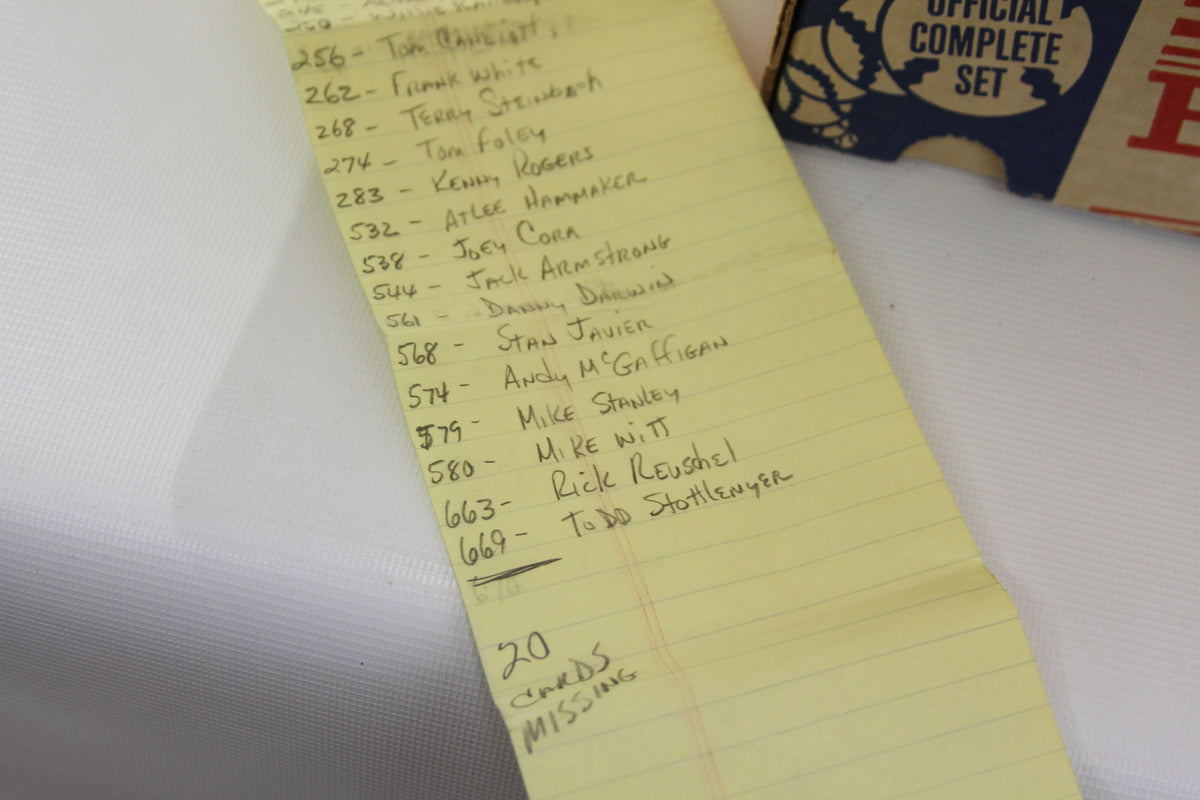 250 - Willie
256 - Tom Candiotti
262 - FRANK White
268 - TERRY STEINBACH
274 - Tom Foley
283 - KENNY ROGERS
532 - ATLEE HAMMAKER
538 - JOEY CORA
544 - JACK ARMSTRONG
561 - DANNY DARWIN
568 - STAN JAVIER
574 - ANDY McGAFFIGAN
579 - MIKE STANLEY
580 - MIKE WITT
663 - RICK REUSCHEL
669 - TODD STOTTLEMYER
20
CARDS
MISSING
OFFICIAL
COMPLETE
SET